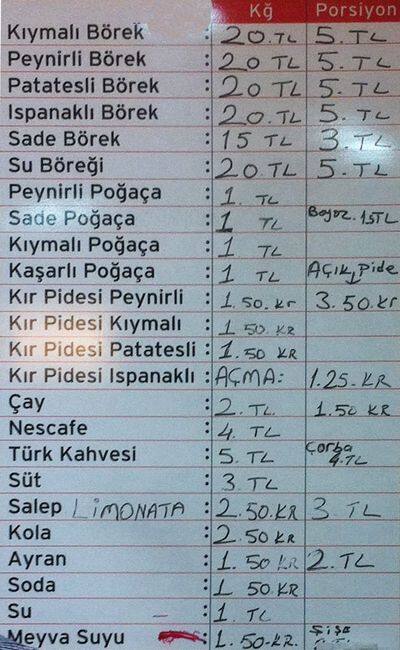 Kğ Porsiyon
Kıymalı Börek : 20.TL 5.TL
Peynirli Börek : 20 TL 5.TL
Patatesli Börek : 20 TL 5.TL
Ispanaklı Börek : 20.TL 5.TL
Sade Börek : 15 TL 3.TL
Su Böreği : 20 TL 5.TL
Peynirli Poğaça : 1. TL
Sade Poğaça : 1 TL Boyoz.1.5TL
Kıymalı Poğaça : 1 TL
Kaşarlı Poğaça : 1 TL Açık Pide
Kır Pidesi Peynirli : 1.50.Kr 3.50.Kr
Kır Pidesi Kıymalı : 1 50.KR
Kır Pidesi Patatesli : 1.50 KR
Kır Pidesi Ispanaklı : AÇMA: 1.25.KR
Çay : 2.TL. 1.50 KR
Nescafe : 4.TL
Türk Kahvesi : 5.TL Çorba 4.TL
Süt : 3 TL
Salep LİMONATA : 2.50.KR 3 TL
Kola : 2.50.KR
Ayran : 1.50 KR 2.TL
Soda : 1 50.KR
Su : 1.TL
Meyva Suyu : 1.50.KR. Şişe